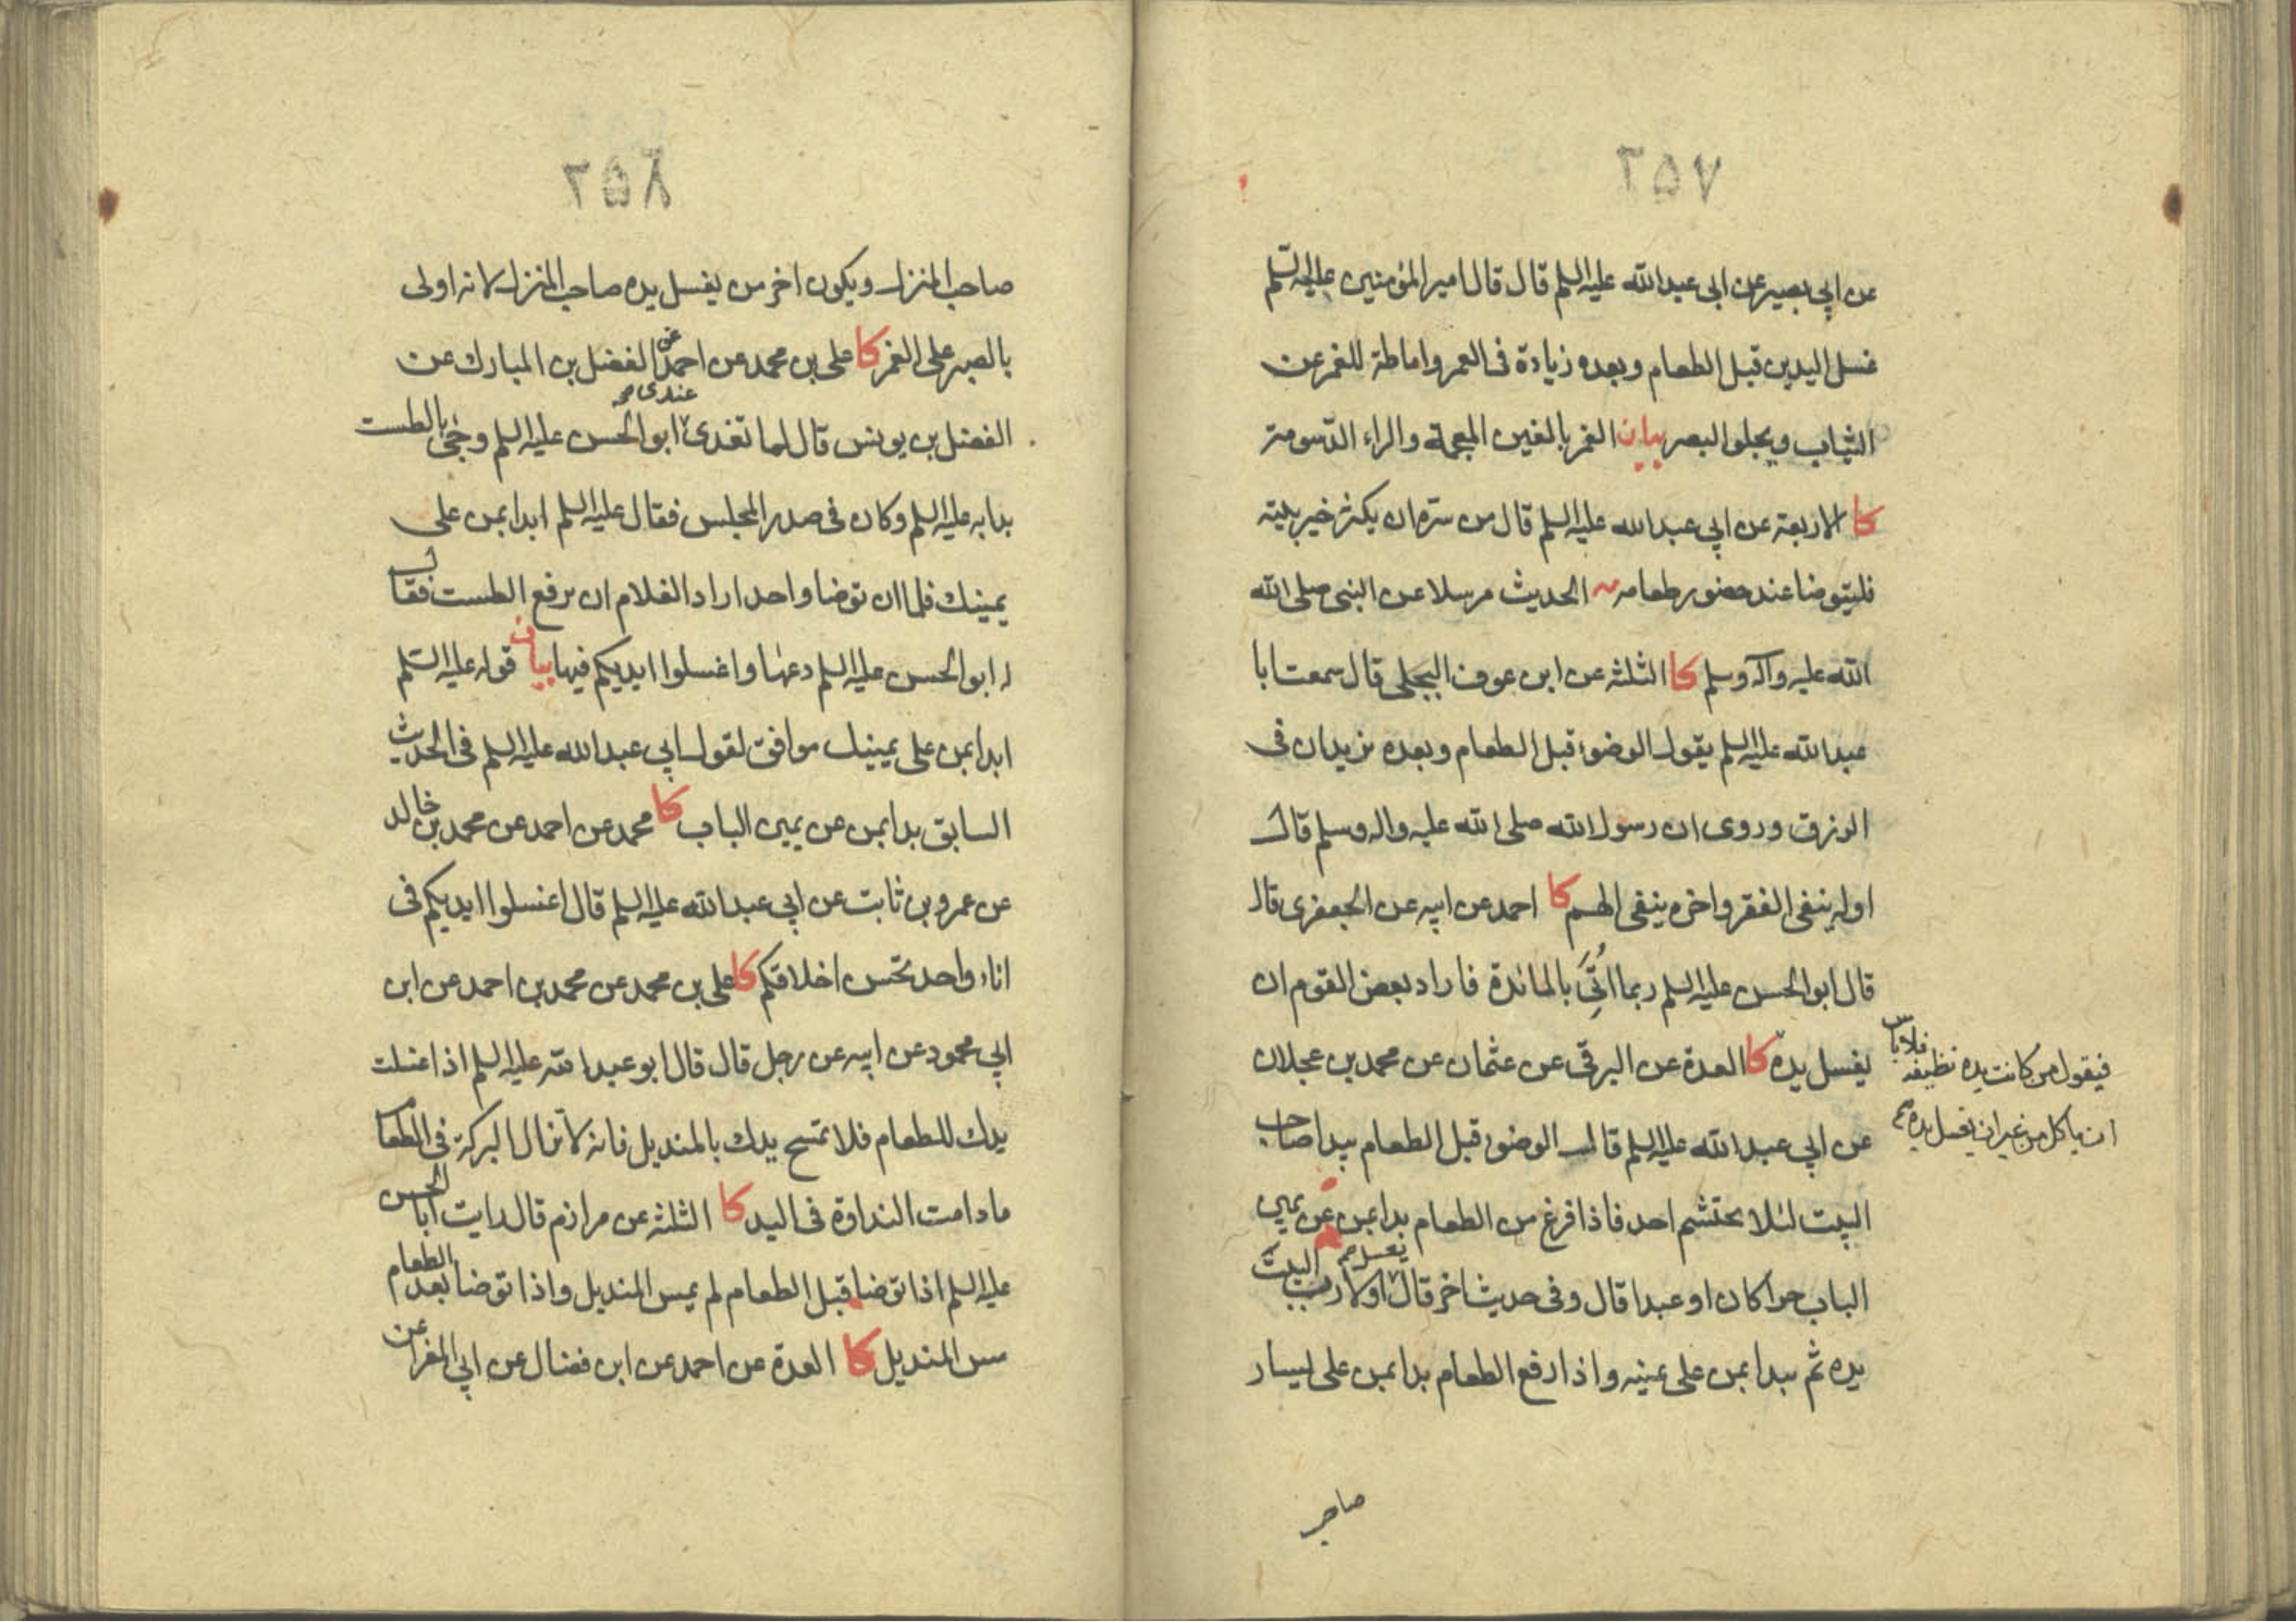 ٢٥٧
عن ابي بصير عن ابى عبد الله عليه السلم قال قال امير المؤمنين عليه السّلم
غسل اليدين قبل الطعام وبعده زيادة فى العمر واماطة للغمر عن
الثياب ويجلو البصر بيان الغمر بالغين المعجمة والراء الدّسومة
كا الاربعة عن ابي عبد الله عليه السلم قال من سرّه ان يكثر خير بيته
فليتوضا عند حضور طعامه الحديث مرسلا عن النبى صلى الله
الله عليه وآله وسلم كا الثلثة عن ابن عوف البجلى قال سمعت ابا
عبد الله عليه السلم يقول الوضوء قبل الطعام وبعده يزيدان فى
الرزق وروى ان رسول الله صلى الله عليه واله وسلم قال
اوله ينفى الفقر واخره ينفى الهم كا احمد عن ابيه عن الجعفرى قال
قال ابو الحسن عليه السلم ربما اُتِىَ بالمائدة فاراد بعض القوم ان
يغسل يده كا العدة عن البرقى عن عثمان عن محمد بن عجلان
فيقول من كانت يده نظيفه فلا باس
ان ياكل من غير ان يغسل يده
عن ابي عبد الله عليه السلم قال الوضوء قبل الطعام يبدا صاحب
البيت لئلا يحتشم احد فاذا فرغ من الطعام بدا بمن عن يمين
الباب حرا كان او عبدا قال وفى حديث اخر قال يغسل اولا رب البيت
يده ثم يبدا بمن على يمينه واذا رفع الطعام بدا بمن على يسار
صاحب
٢٥٨
صاحب المنزل ويكون اخر من يغسل يده صاحب المنزل لانه اولى
بالصبر على الغمر كا على بن محمد عن احمد عن الفضل بن المبارك عن
الفضل بن يونس قال لما تغدى عندى ابو الحسن عليه السلم وجئ بالطست
بدا به عليه السلم وكان فى صدر المجلس فقال عليه السلم ابدا بمن على
يمينك فلما ان توضا واحد اراد الغلام ان يرفع الطست فقال
له ابو الحسن عليه السلم دعها واغسلوا ايديكم فيها بيان قوله عليه السّلم
ابدا بمن على يمينك موافق لقول ابي عبد الله عليه السلم فى الحديث
السابق بدا بمن عن يمين الباب كا محمد عن احمد عن محمد بن خالد
عن عمرو بن ثابت عن ابي عبد الله عليه السلم قال اغسلوا ايديكم فى
اناء واحد تحسن اخلاقكم كا على بن محمد عن محمد بن احمد عن ابن
ابي محمود عن ابيه عن رجل قال قال ابو عبد الله عليه السلم اذا غسلت
يدك للطعام فلا تمسح يدك بالمنديل فانه لا تزال البركة فى الطعام
ما دامت النداوة فى اليد كا الثلثة عن مرازم قال رايت ابا الحسن
عليه السلم اذا توضا قبل الطعام لم يمس المنديل واذا توضا بعد الطعام
مس المنديل كا العدة عن احمد عن ابن فضال عن ابي المغرا عن